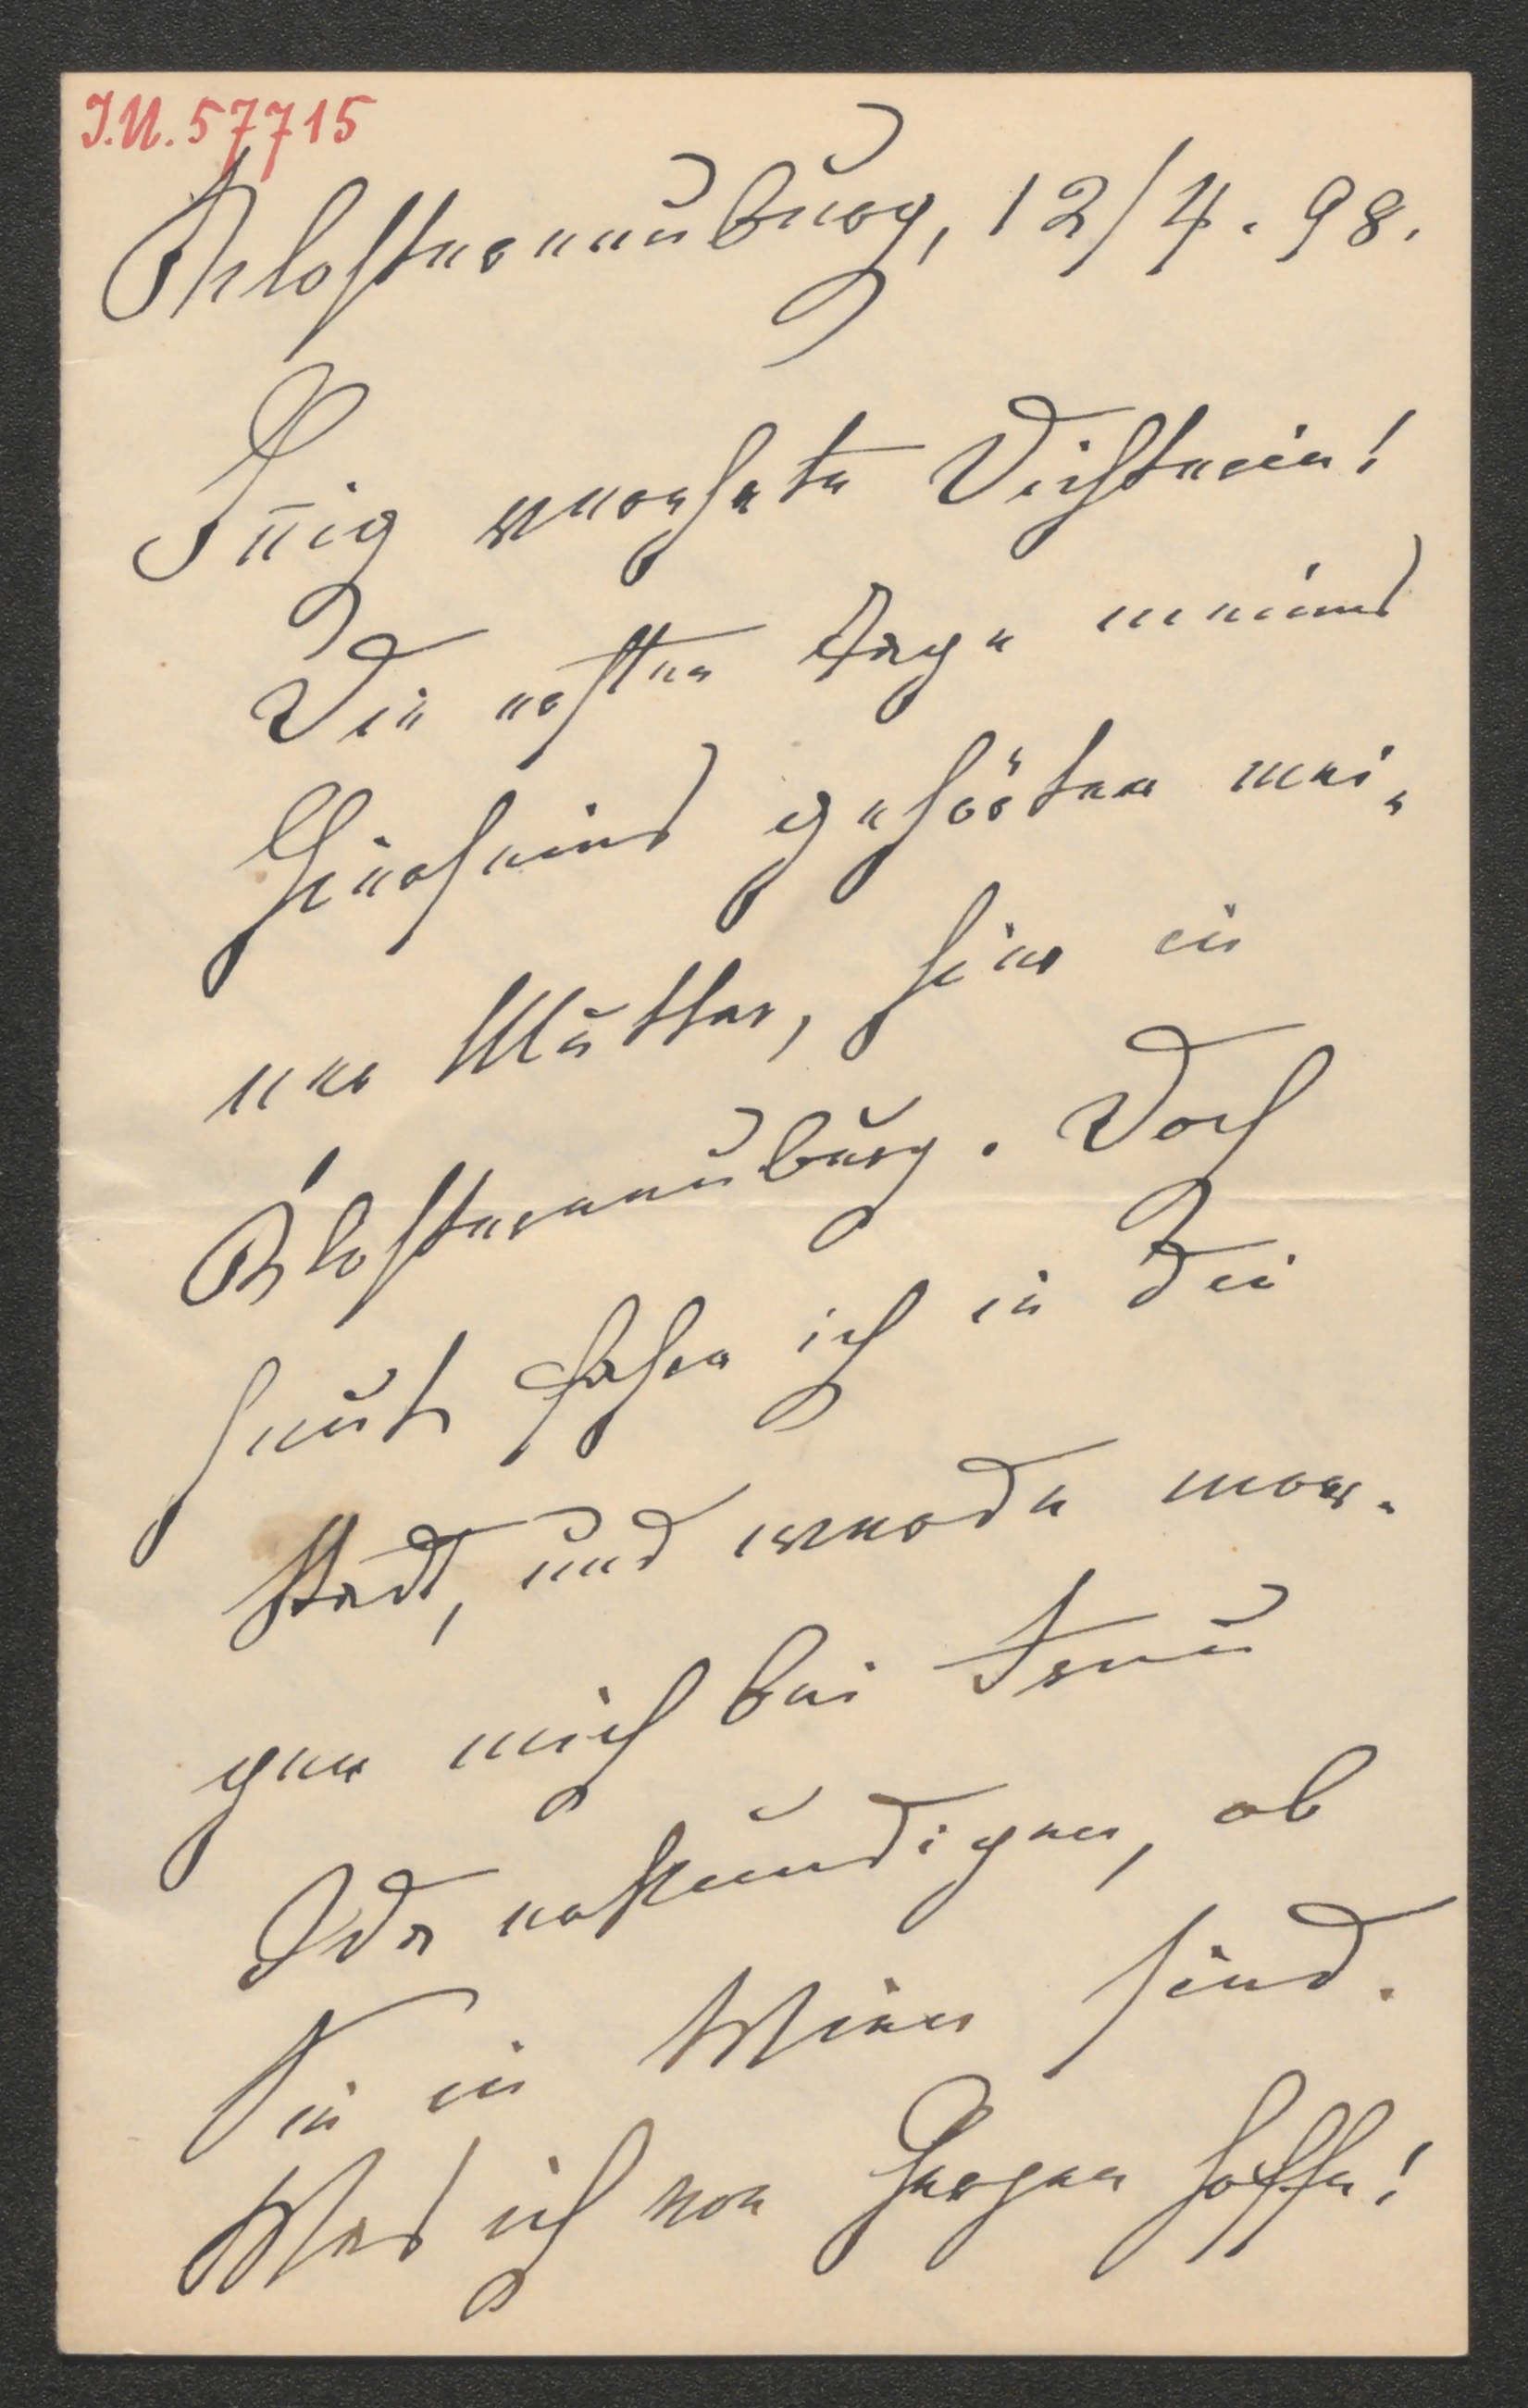 I.N. 57715
Klosterneuburg, 12/4. 98.
Innig verehrte Dichterin!
Die ersten Tage meines
Hierseins gehörten mei-
ner Mutter, hier in
Klosterneuburg. Doch
heute fahre ich in die
Stadt, und werde mor-
gen mich bei Frau
Ida erkundigen, ob
Sie in Wien sind.
Was ich von Herzen hoffe!